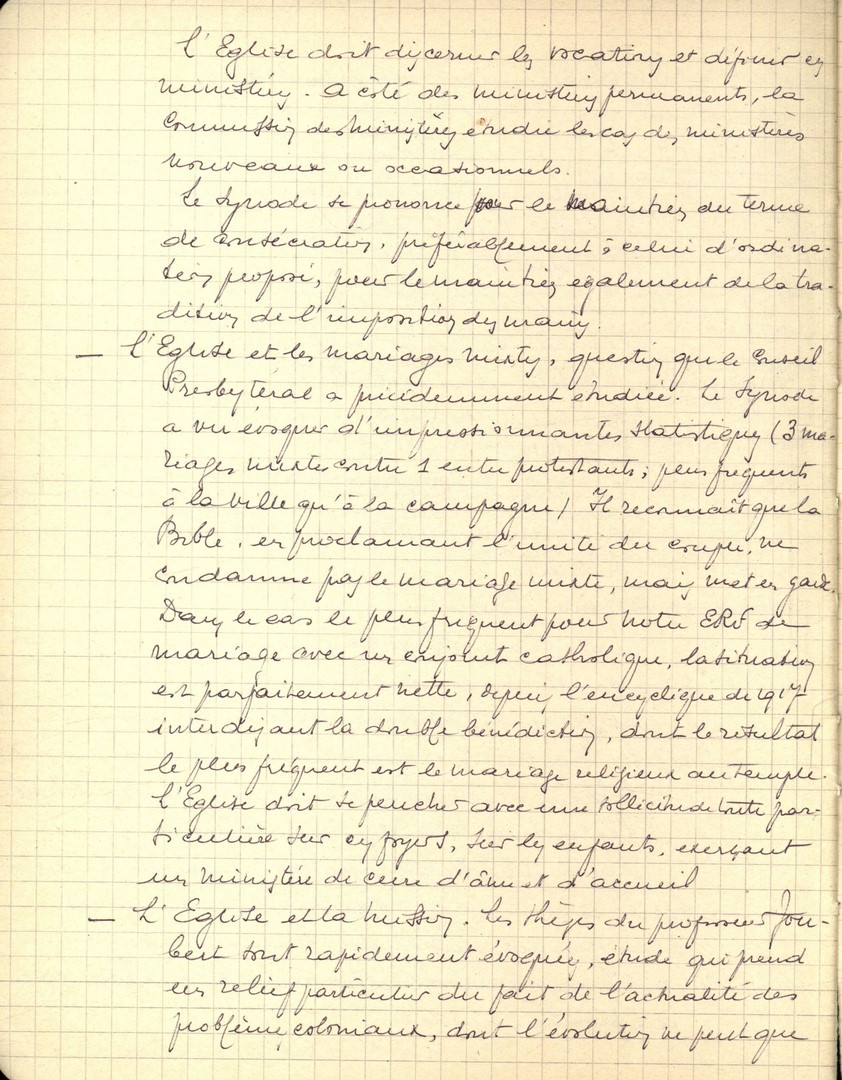 L'Eglise doit discerner les vocations et définir ces
ministères. A côté des ministères permanents, la
Commission des Ministères étudie les cas des ministères
nouveaux ou occasionnels.
Le Synode se prononce pour le maintien du terme
de consécration, préférablement à celui d'ordina-
tion proposé, pour le maintien également de la tra-
dition de l'imposition des mains.
— L'Eglise et les mariages mixtes, question que le Conseil
Presbytéral a précédemment étudiée. Le Synode
a vu évoquer d'impressionnantes statistiques (3 ma-
riages mixtes contre 1 entre protestants; plus fréquents
à la ville qu'à la campagne) Il reconnaît que la
Bible, en proclamant l'unité du couple, ne
condamne pas le mariage mixte, mais met en garde.
Dans le cas le plus fréquent pour notre ERF de
mariage avec un conjoint catholique, la situation
est parfaitement nette, depuis l'encyclique de 1917
interdisant la double bénédiction, dont le résultat
le plus fréquent est le mariage religieux au temple.
L'Eglise doit se pencher avec une sollicitude toute par-
ticulière sur ces foyers, sur les enfants, exerçant
un ministère de cure d'âme et d'accueil
— L'Eglise et la mission. Les thèses du professeur Jou-
bert sont rapidement évoquées, étude qui prend
un relief particulier du fait de l'actualité des
problèmes coloniaux, dont l'évolution ne peut que